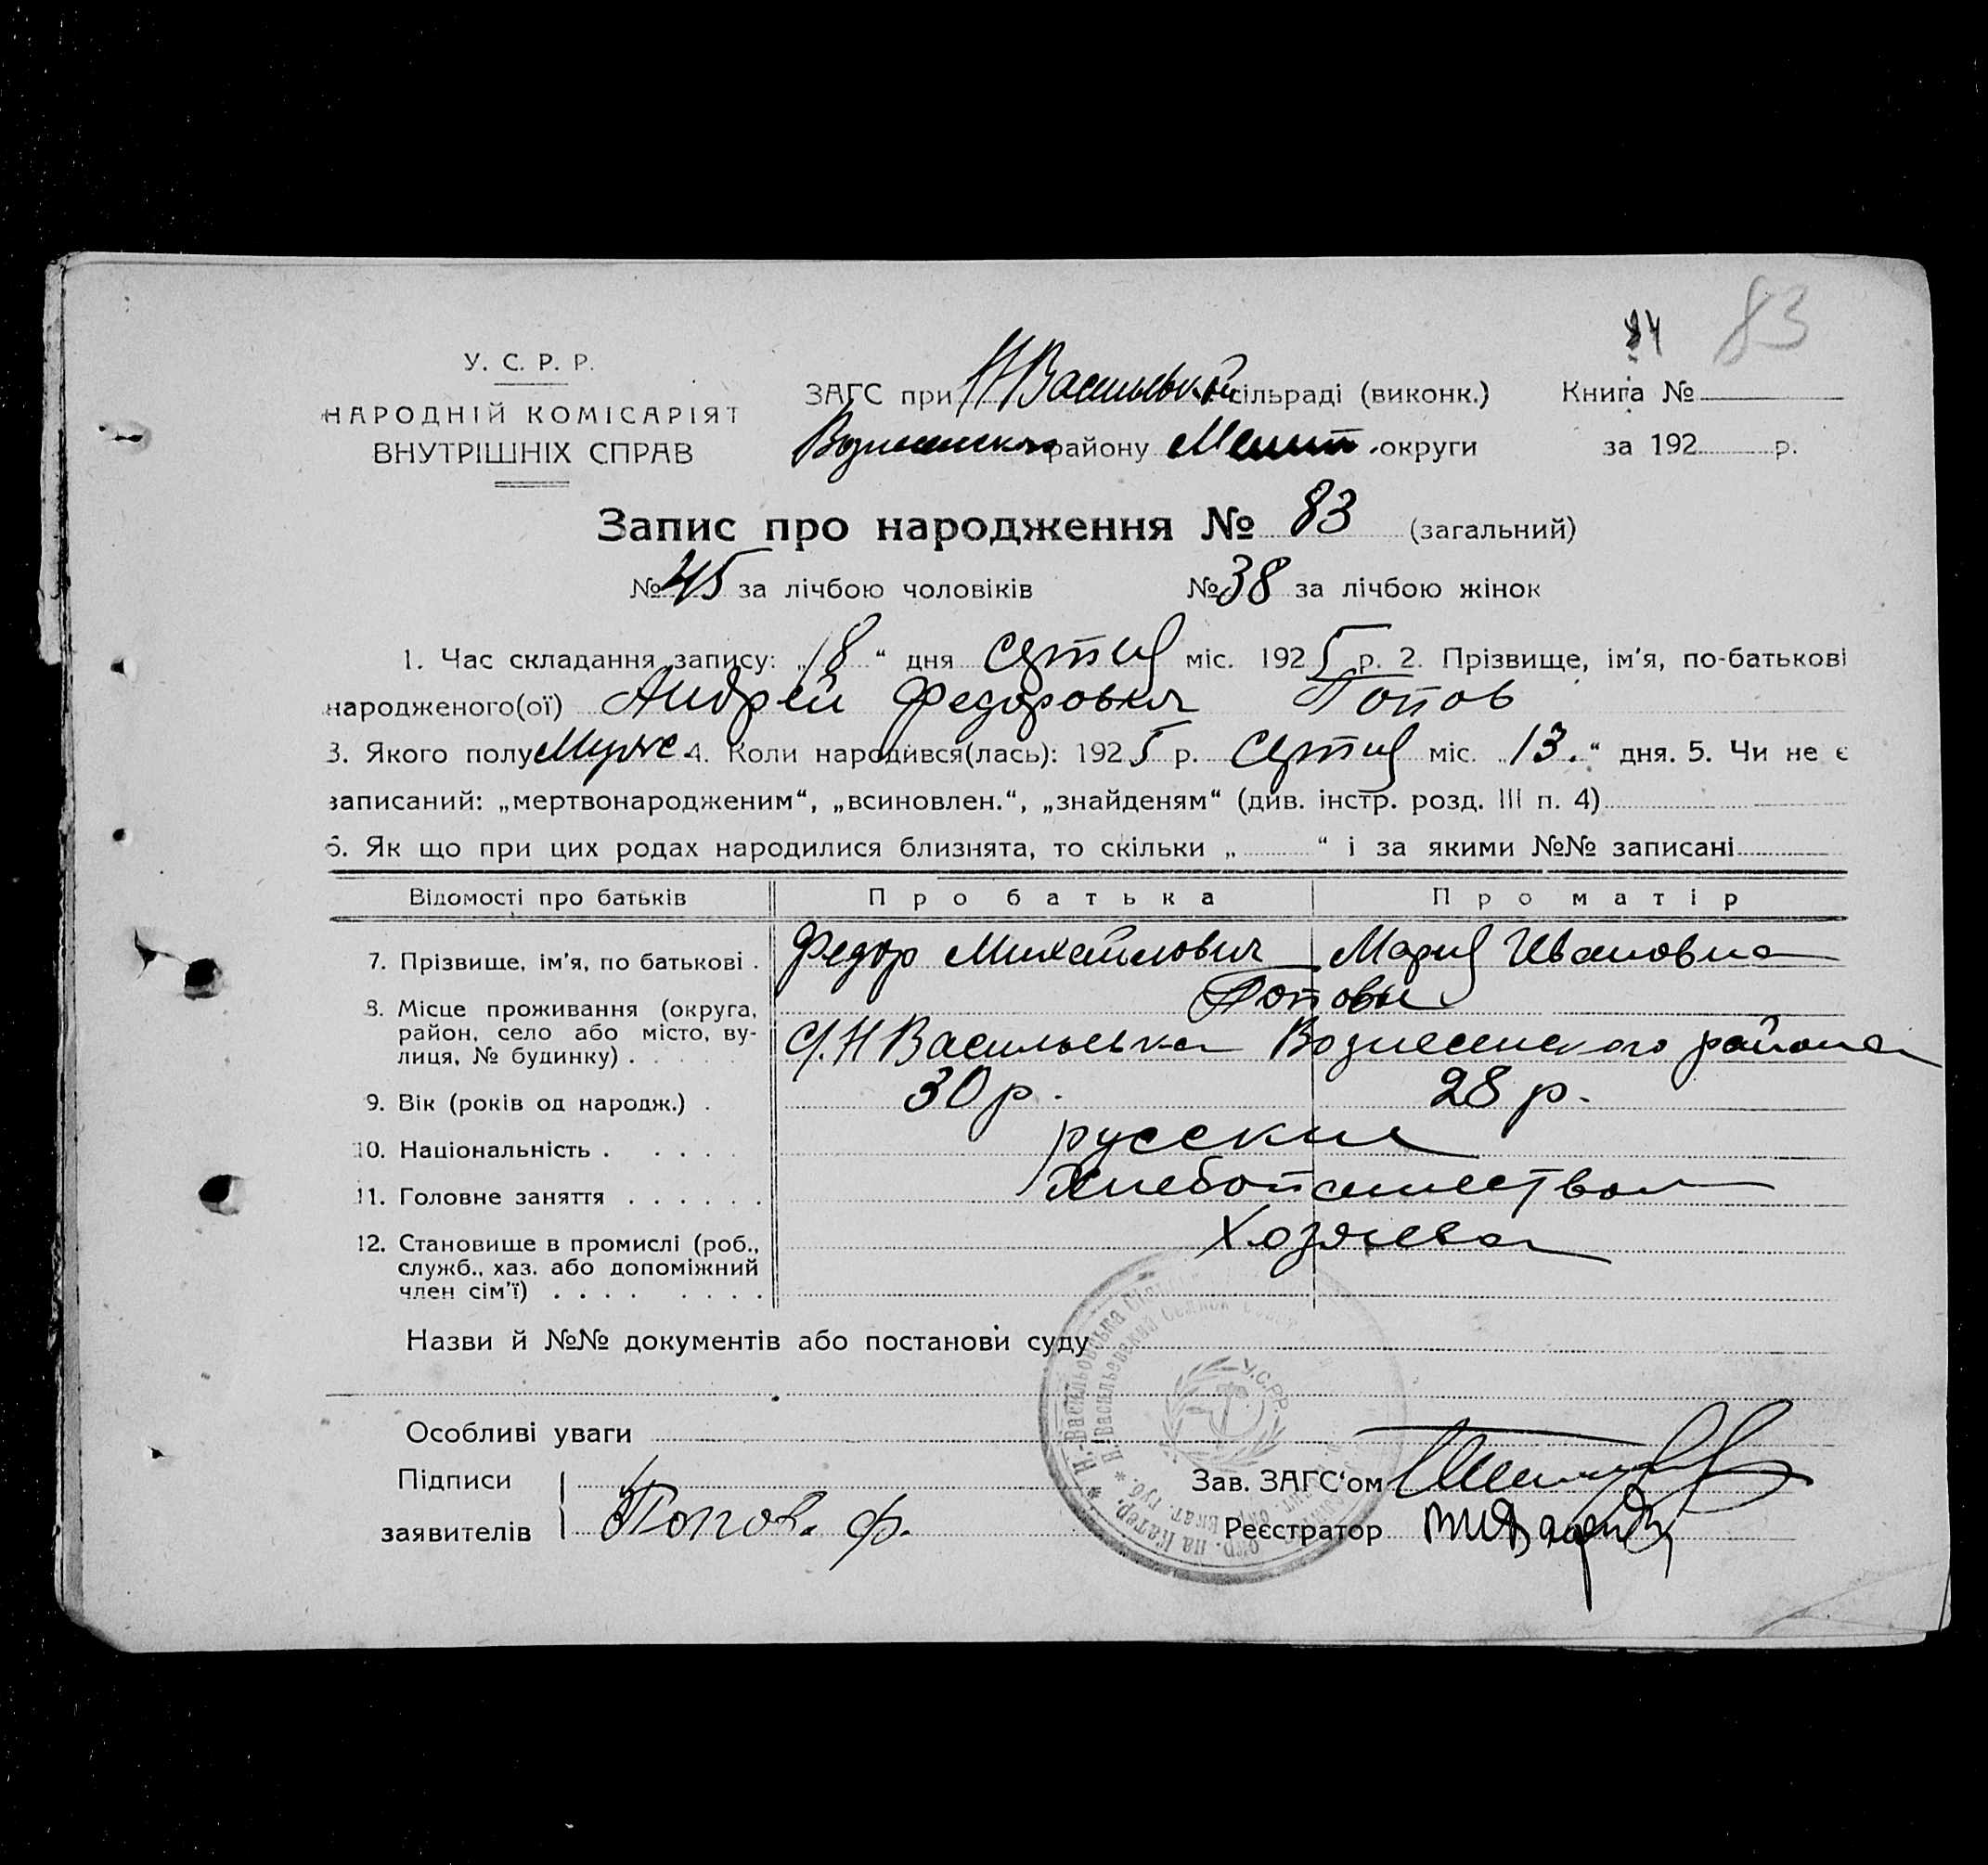 84 83
У. С. Р. Р.
НАРОДНІЙ КОМІСАРІЯТ
ВНУТРІШНІХ СПРАВ
ЗАГС при Н Васильевкой сільраді (виконк.) Книга №
району Мелит. округи за 192 р.
Запис про народження № 83 (загальний)
№ 45 за лічбою чоловіків № 38 за лічбою жінок
1. Час складання запису: „18“ дня міс. 1925 р. 2. Прізвище, ім'я, по-батькові
народженого(ої) Андрей Федорович Попов
3. Якого полу Мужс. 4. Коли народився(лась): 1925 р. міс. „13.“ дня. 5. Чи не є
записаний: „мертвонародженим“, „всиновлен.“, „знайденям“ (див. інстр. розд. III п. 4)
6. Як що при цих родах народилися близнята, то скільки „ “ і за якими №№ записані
Відомості про батьків Про батька Про матір
7. Прізвище, ім'я, по батькові . Федор Михайлович Мария Ивановна
Поповы
8. Місце проживання (округа, район, село або місто, ву-
лиця, № будинку) . С. Н Васильевка Вознесенского района
9. Вік (років од народж.) . 30 р. 28 р.
10. Національність . русские
11. Головне заняття Хлебопашество
12. Становище в промислі (роб., служб., хаз. або допоміжний
член сім'ї) Хозяева
Назви й №№ документів або постанови суду
Особливі уваги
Підписи
заявителів Попов. Ф.
Зав. ЗАГС'ом
Реєстратор
Н.-Васильовська
Н. Васильевский
У.С.Р.Р.